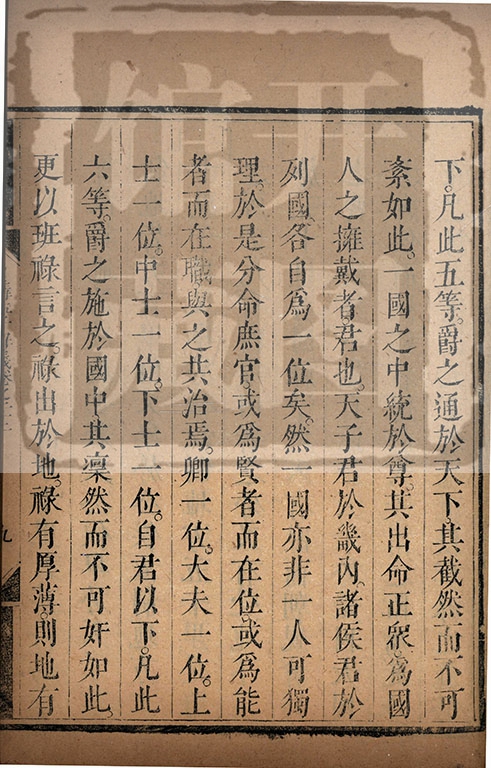 下。凡此五等。爵之通於天下其截然而不可
紊如此。一國之中統於尊。其出命正衆。為國
人之擁戴者君也。天子君於畿內。諸侯君於
列國。各自為一位矣。然一國亦非一人可獨
理。於是分命庶官。或為賢者而在位。或為能
者而在職。與之共治焉。卿一位。大夫一位。上
士一位。中士一位。下士一位。自君以下。凡此
六等。爵之施於國中其凜然而不可奸如此。
更以班祿言之。祿出於地。祿有厚薄。則地有
九